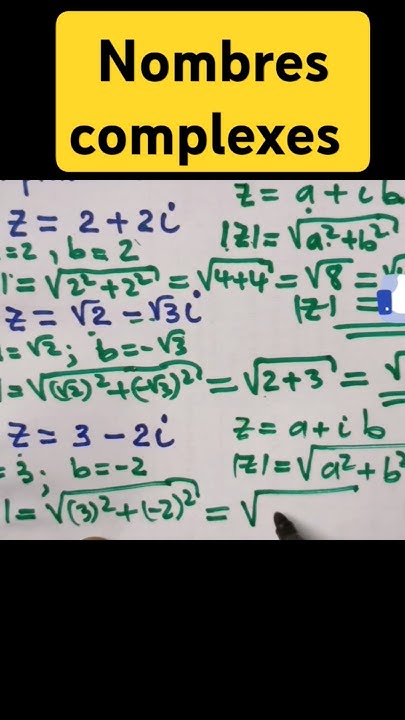 Nombres
complexes
z = a + i b
z = 2 + 2i
|z| = √a² + b²
=2 , b = 2
| = √2² + 2² = √4+4 = √8 = √
|z| =
z = √2 - √3i
= √2 ; b = -√3
| = √(√2)² + (-√3)² = √2 + 3 = √
z = 3 - 2i
z = a + i b
= 3 ; b = -2
|z| = √a² + b²
| = √(3)² + (-2)² = √